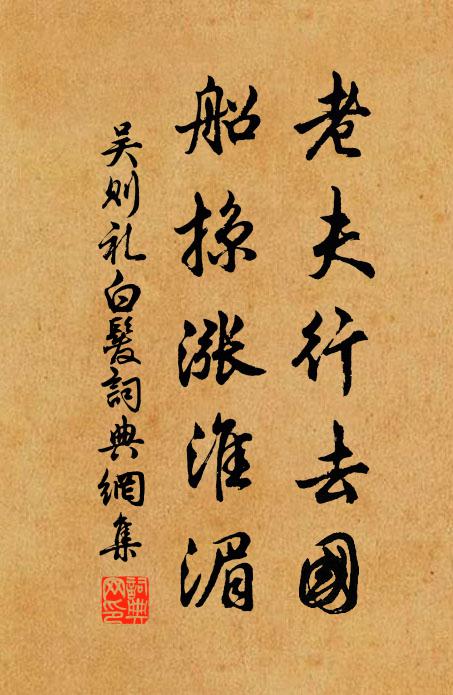 老夫行去國
船掠漲淮湄
吴则礼白髮詞典網集
詞典網印